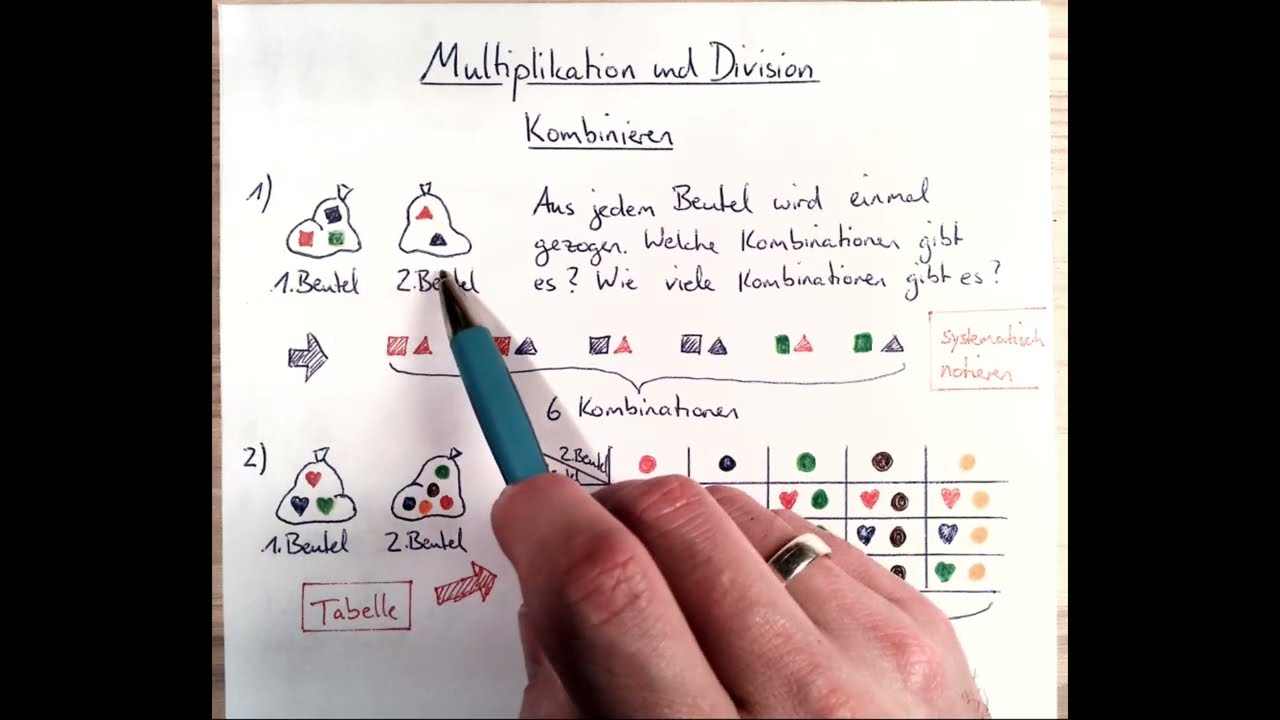 Multiplikation und Division
Kombinieren
1)
1. Beutel
2. Beutel
Aus jedem Beutel wird einmal
gezogen. Welche Kombinationen gibt
es? Wie viele Kombinationen gibt es?
systematisch
notieren
6 Kombinationen
2)
1. Beutel
2. Beutel
2. Beutel
Tabelle